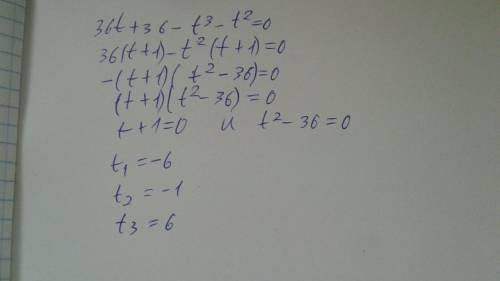 36t+36-t³-t²=0
36(t+1)-t²(t+1)=0
-(t+1)(t²-36)=0
(t+1)(t²-36)=0
t+1=0 и t²-36=0
t₁=-6
t₂=-1
t₃=6